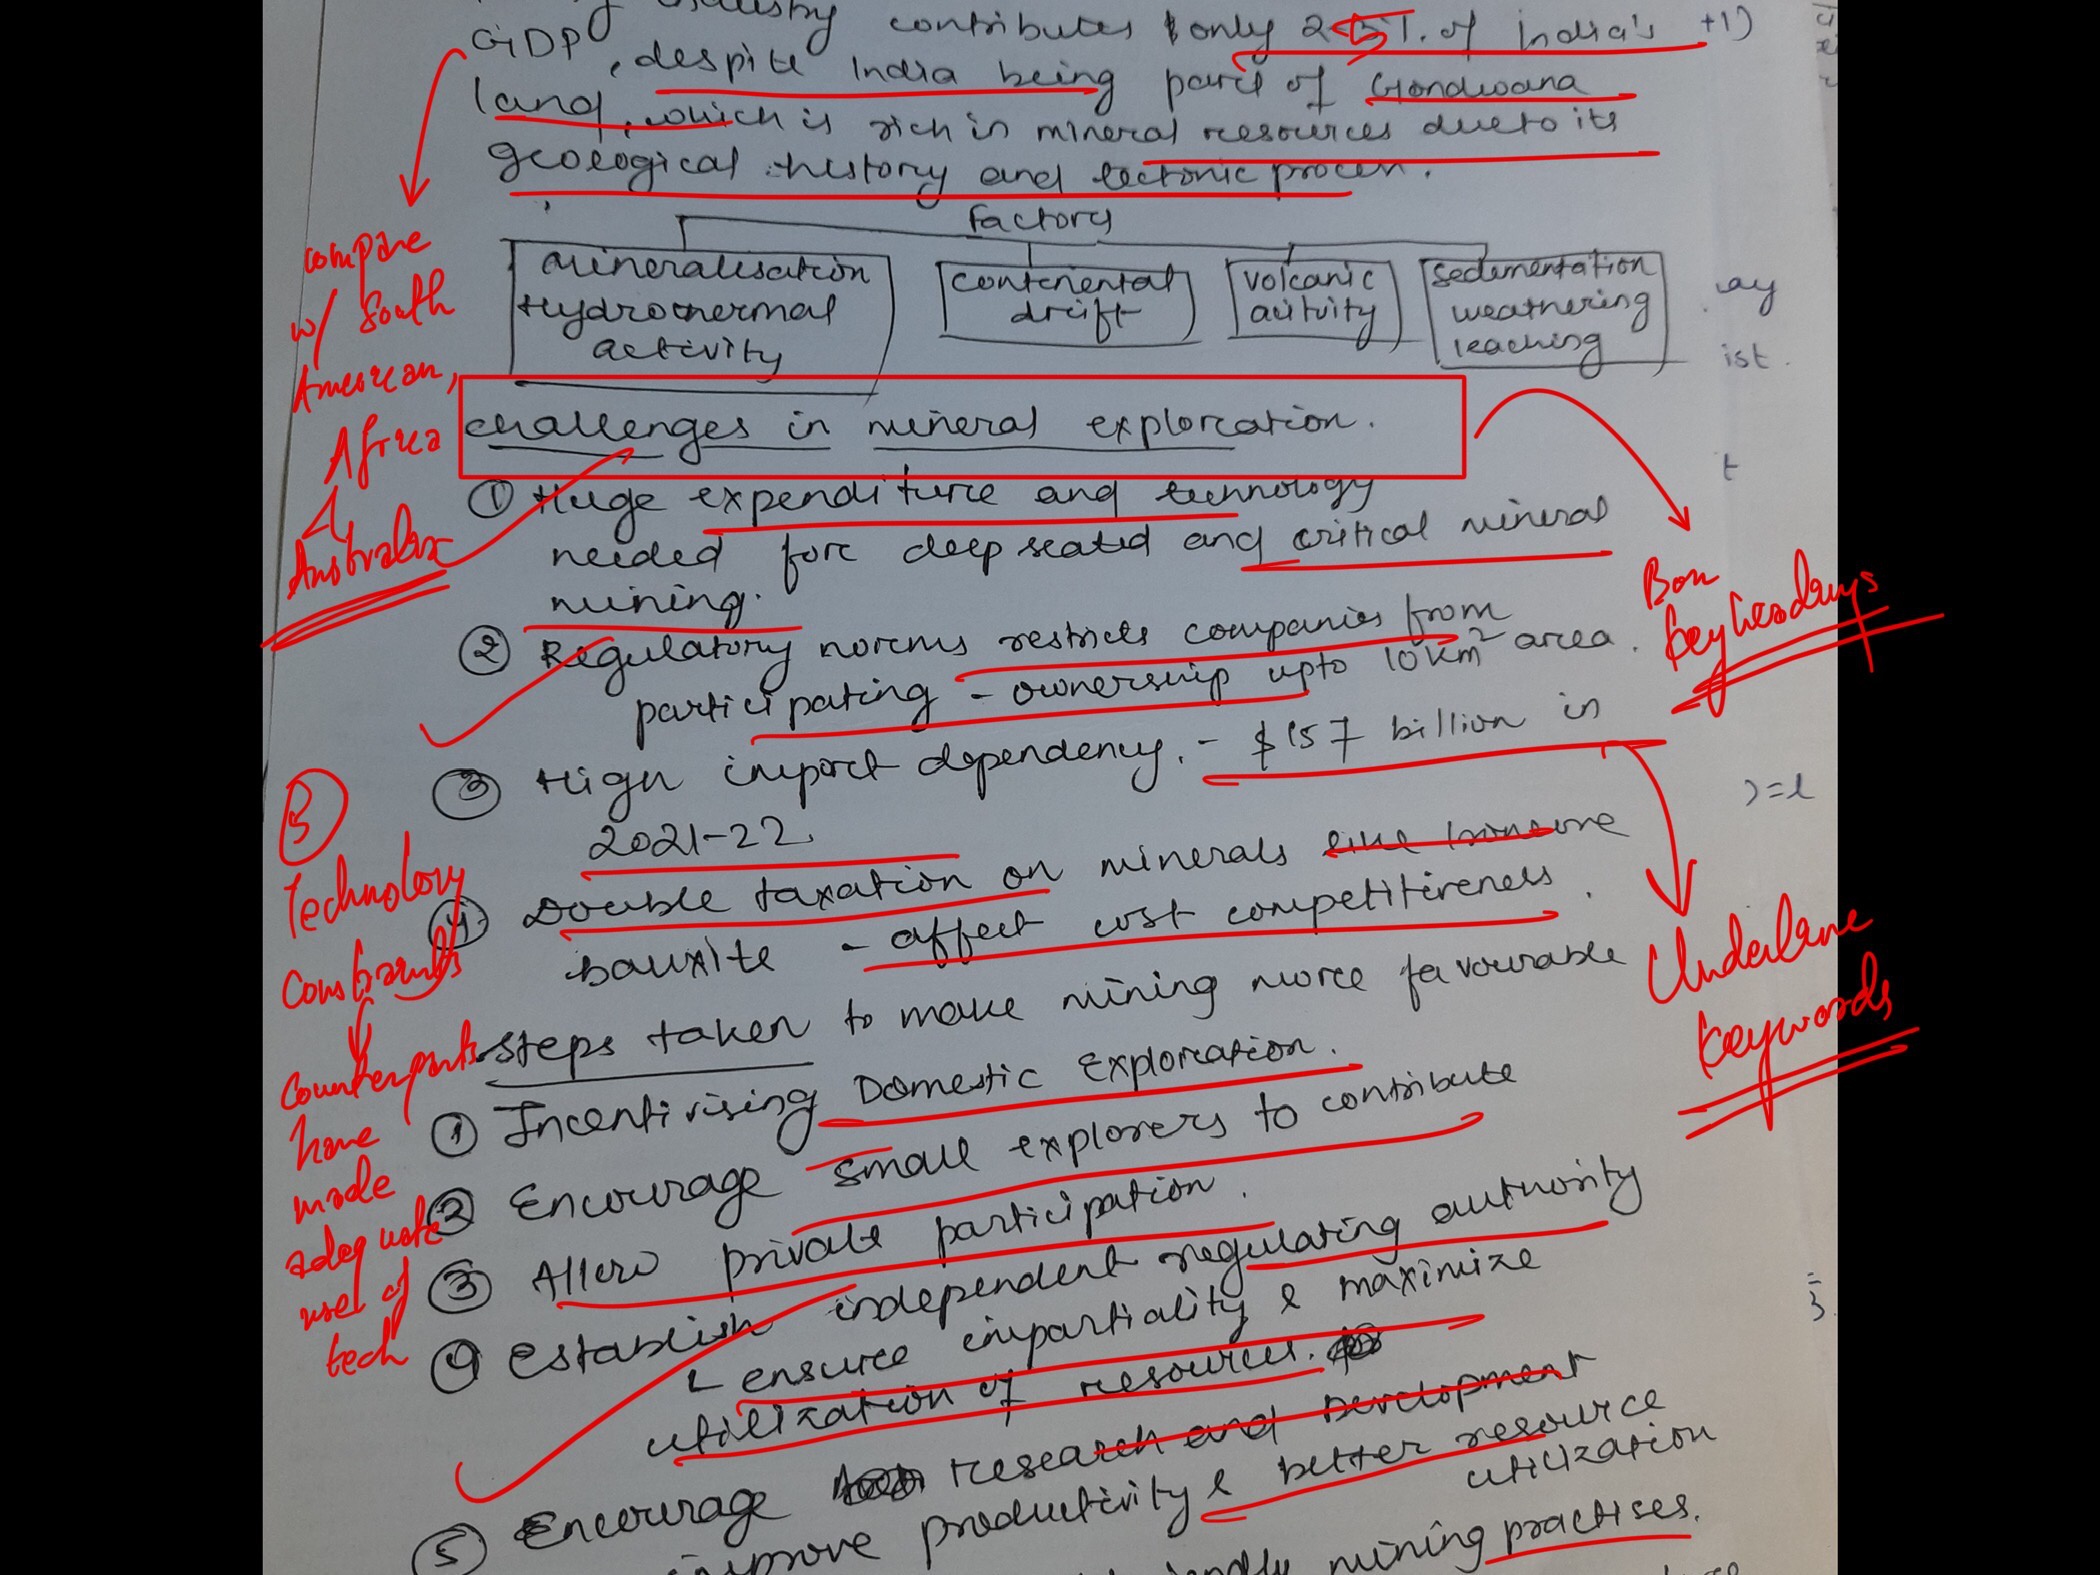 industry contributes only 2.5%. of India's
GDP, despite India being part of Gondwana
land, which is rich in mineral resources due to its
geological history and tectonic process.
Factors
mineralisation
Hydrothermal
activity
continental
drift
volcanic
activity
sedimentation
weathering
leaching
challenges in mineral exploration.
① Huge expenditure and technology
needed for deep seated and critical mineral
mining.
② Regulatory norms restricts companies from
participating - ownership upto 10 km² area.
③ High import dependency. - $157 billion in
2021-22.
④ Double taxation on minerals like iron ore
bauxite - affect cost competitiveness.
steps taken to make mining more favourable
① Incentivising Domestic Exploration.
② Encourage small explorers to contribute
③ Allow private participation.
④ Establish independent regulating authority
ensure impartiality & maximize
utilization of resources.
⑤ Encourage research and Development
improve productivity & better resource
utilization
mining practises.
compare
w/ South
American,
Africa
&
Australia
5
Technology
Constraints
Counterparts
have
made
adequate
use of
tech
Box
key headings
Underline
keywords
+1)
ay
ist.
t